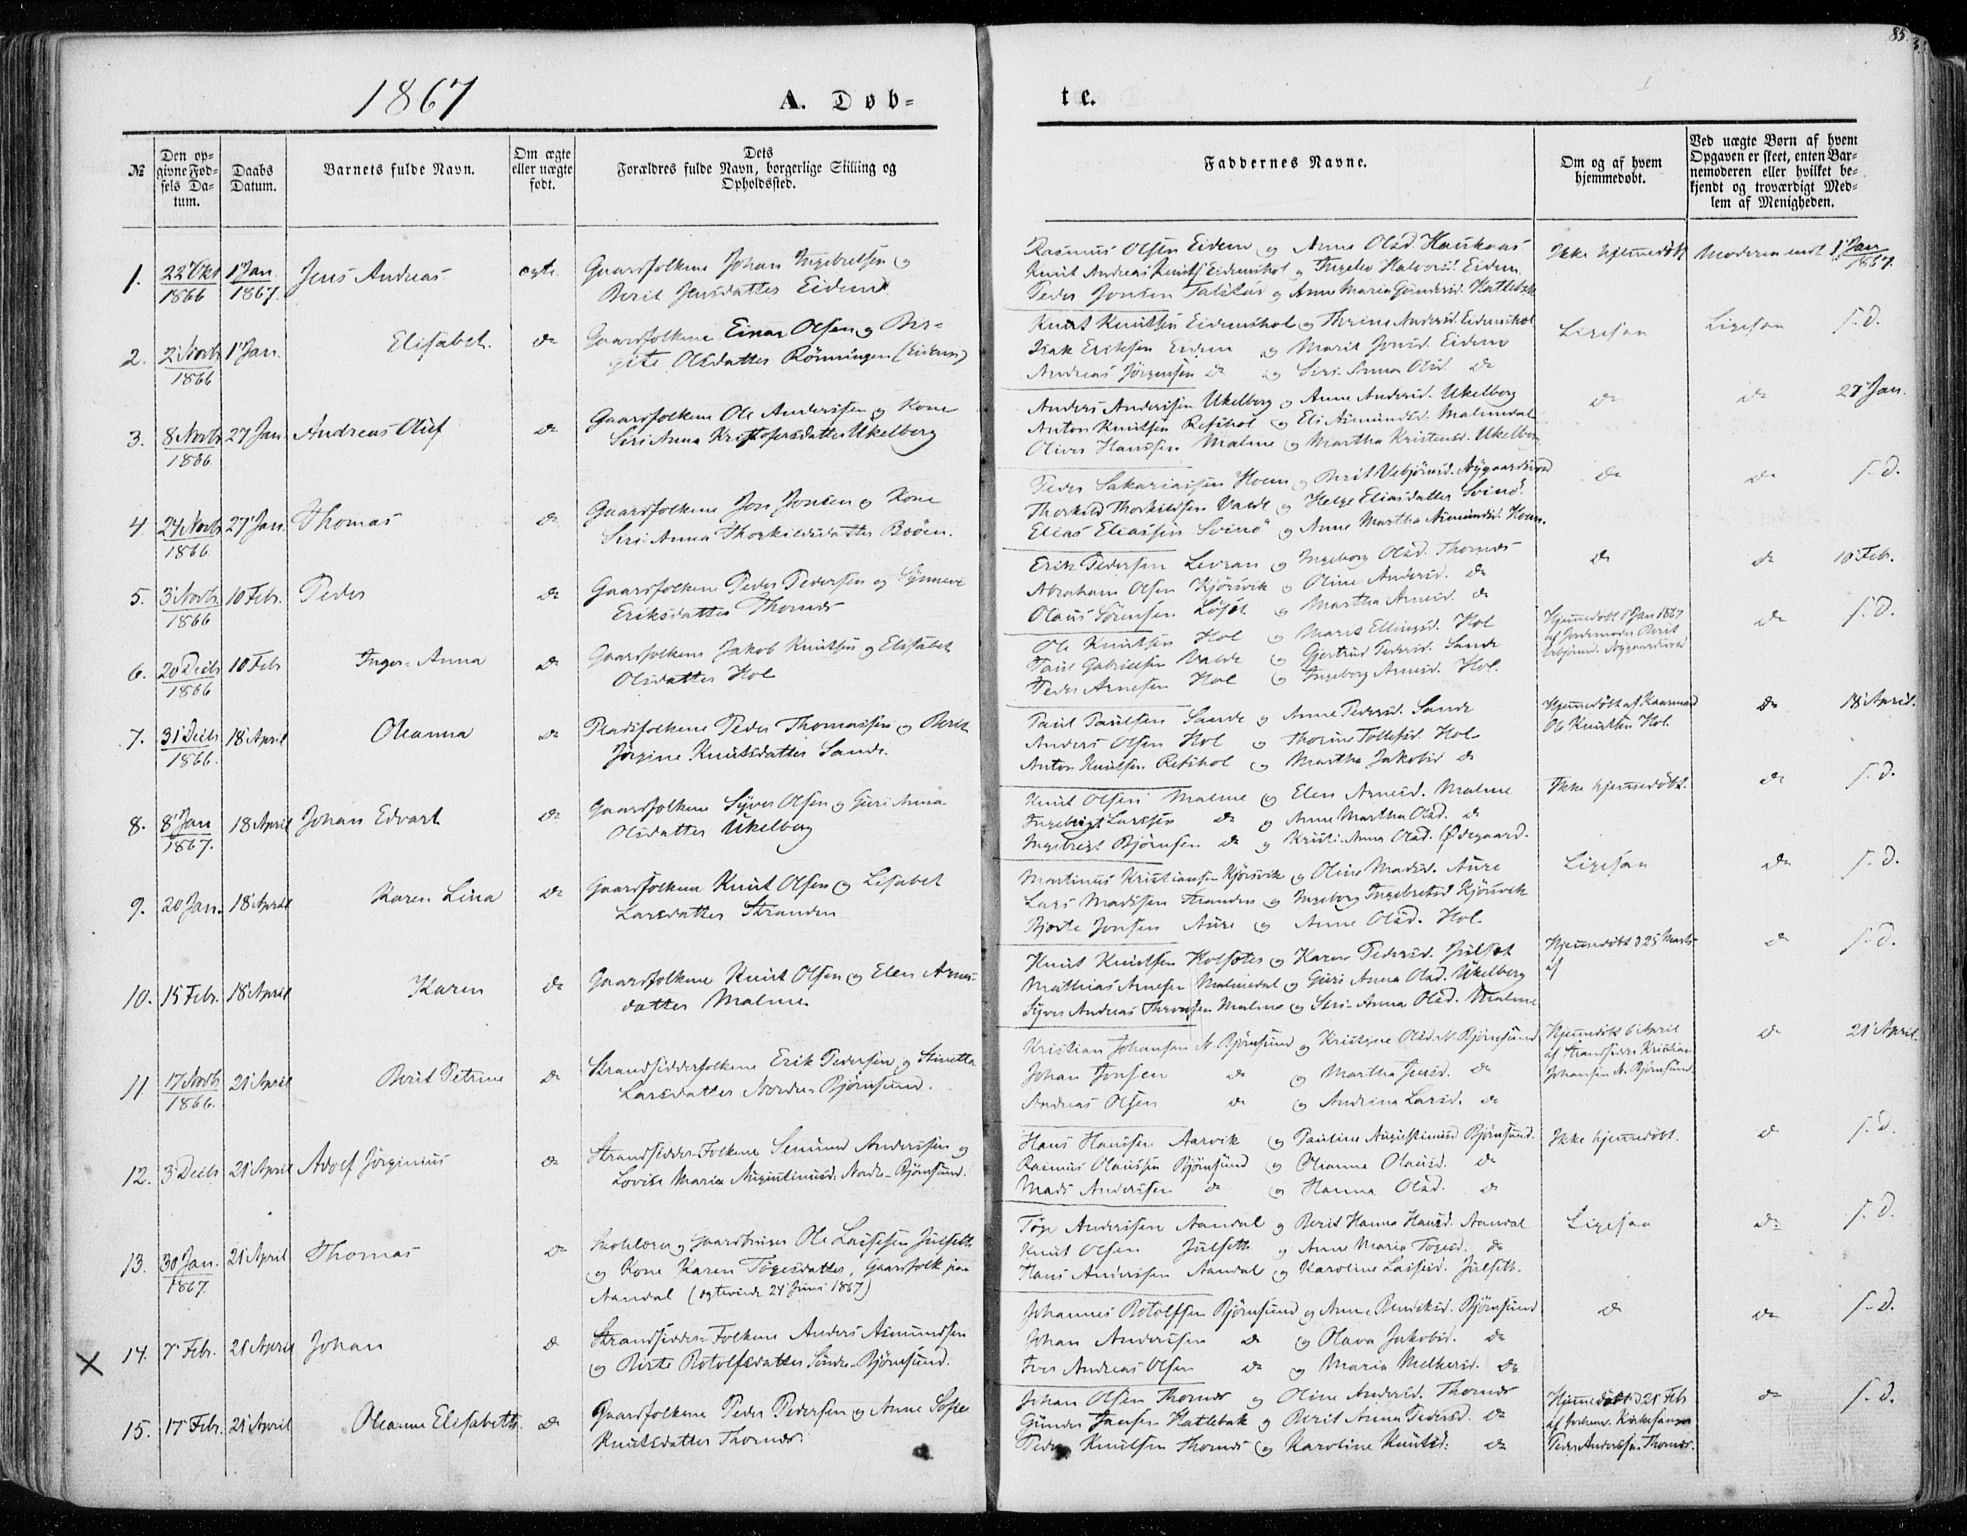 85.
1867
A. Døb=
te.
№
Den op=
givne Fød=
sels Da=
tum.
Daabs
Datum.
Barnets fulde Navn.
Om ægte
eller uægte
født.
Dets
Forældres fulde Navn, borgerlige Stilling og
Opholdssted.
Faddernes Navne.
Om og af hvem
hjemmedøbt.
Ved uægte Børn af hvem
Opgaven er skeet, enten Bar=
nemoderen eller hvilket be=
kjendt og troværdigt Med=
lem af Menigheden.
1. 22 Okt 1866 1 Jan. 1867. Jens Andreas ægte. Gaardfolkene Johan Ingebretsen og
Berit Jensdatter Eidem
Rasmus Olsen Eidem og Anne Olsd. Haukaas
Knut Andreas Knuts. Eidemshol og Ingelev Halvorsd. Eidem
Peder Jonsen Talstad og Anne Maria Gundersd. Hatlebak
Ikke hjemmedøbt Moderen indt 1 Jan 1867.
2. 2 Novb 1866 1 Jan. Elisabet. do Gaardfolkene Einar Olsen og Ber-
gite Olsdatter Rönningen (Eidem)
Knut Knutsen Eidemshol og Thrine Andersd. Eidemshol
Isak Eriksen Eidem og Marit Jonsd. Eidem
Andreas Jörgensen do og Seri Anna Olsd. do
Ligesaa Ligesaa s. d.
3. 8 Novb 1866 27 Jan. Andreas Oluf do Gaardfolkene Ole Anderssen og Kone
Seri Anna Kristofersdatter Ukelberg
Anders Anderssen Ukelberg og Anne Andersd. Ukelberg
Anton Knutsen Refshol og Eli Asmundsd. Malmedal
Oliver Hansen Malme og Martha Kristensd. Ukelberg
do do 27 Jan.
4. 24 Novb 1866 27 Jan. Thomas do Gaardfolkene Jon Jonsen og Kone
Seri Anna Thorkildsdatter Bröen.
Peder Sakariassen Hoem og Berit Vebjörnsd. Nygaardsvod
Thorkild Thorkildsen Valde og Helge Eliasdatter Svinö
Elias Eliassen Svinö og Anne Martha Asmundsd. Hoem.
do do s. d.
5. 3 Novb 1866 10 Feb. Peder do Gaardfolkene Peder Pedersen og Synneve
Eriksdatter Thornes
Erik Pedersen Levran og Ingeborg Olsd. Thornes
Abraham Olsen Kjörsvik og Oline Andersd. do
Olaus Sörensen Löset og Martha Arnesd. do
do do 10 Feb.
6. 20 Decb 1866 10 Feb Inger-Anna do Gaardfolkene Jakob Knutsen og Elisabet
Olsdatter Hol
Ole Knutsen Hol og Marit Ellingsd. Hol
Paul Gabrielsen Valde og Gjertrud Pedersd. Sande
Peder Arnesen Hol og Ingeborg Arnesd. Hol.
Hjemmedøbt 1 Jan 1867
af Jordemoder Berit
Vebjörnsd. Nygaardsvod
do s. d.
7. 31 Decb 1866. 18 April Oleanna do Pladsfolkene Peder Thomassen og Berit
Jörgine Knutsdatter Sande.
Paul Paulsen Sande og Anne Pedersd. Sande
Anders Olsen Hol og Thorine Tollefsd. Hol
Anton Knutsen Refshol og Martha Jakobsd do
Hjemmedøbt af Kaarmand
Ole Knutsen Hol.
do 18 April.
8. 8 Jan 1867. 18 April Johan Edvart do Gaardfolkene Syver Olsen og Guri Anna
Olsdatter Ukelberg
Knut Olsen Malme og Elen Arnesd. Malme
Ingebrigt Larssen do og Anne Martha Olsd. do
Ingebrigt Bjørnsen do og Kristi-Anna Olsd. Ødegaard.
Ikke hjemmedøbt. do s. d.
9. 20 Jan. 18 April Karen Lina do Gaardfolkene Knut Olsen og Lisabet
Larsdatter Stranden
Martinus Kristiansen Kjörsvik og Oline Madsd. Aure
Lars Madsen Stranden og Ingeborg Ingebretsd Kjörsvik
Bjørte Jonsen Aure og Anne Olsd. Hol.
Ligesaa do s. d.
10. 15 Febr. 18 April Karen do Gaardfolkene Knut Olsen og Elen Arnes-
datter Malme.
Knut Knutsen Holsæter og Karen Pedersd. Julset
Mathias Arnesen Malmedal og Guri Anna Olsd. Ukelberg
Syver Andreas Malme og Seri-Anna Olsd. Malme
Hjemmedøbt d 25 Marts
af
do s. d.
11. 17 Novb 1866. 21 April Berit Petrine do Strandsidderfolkene Erik Pedersen og Stinetta
Larsdatter Nordre Bjørnsund.
Kristian Johansen N. Bjørnsund og Kristine Olsd. N. Bjørnsund
Johan Jonsen do og Martha Jensd. do
Andreas Olsen do og Andrina Larsd. do
Hjemmedøbt 6 April
af Strandsidder Kristian
Johansen N. Bjørnsund.
do 21 April.
12. 3 Decb 21 April Adolf Jörginius do Strandsidder-Folkene Semund Anderssen og
Lovise Maria Augustinusd. Nordre-Bjørnsund.
Hans Hanssen Aarvik og Pauline Augustinusd Bjørnsund.
Rasmus Olaussen Bjørnsund og Oleanna Olausd. do
Mads Anderssen do og Hanna Olsd. do
Ikke hjemmedøbt. do s. d.
13. 30 Jan. 1867. 21 April Thomas do Skolelærer og Gaardbruger Ole Lassesen Julseth
og Kone Karen Tögesdatter, Gaardfolk paa
Aandal (ægteviede 24 Juni 1867)
Töge Anderssen Aandal og Berit Hanna Hansd. Aandal
Knut Olsen Julseth og Anne Maria Tögesd. do
Hans Anderssen Aandal og Karoline Lassesd. Julseth.
Ligesaa do s. d.
X 14. 7 Feb. 21 April Johan do Strandsidder-Folkene Anders Asmundsen
og Birte Rotolfsdatter Søndre-Bjørnsund.
Johannes Rotolfsen Bjørnsund og Anne Bendiksd. Bjørnsund
Johan Anderssen do og Olava Jakobsd. do
Iver Andreas Olsen do og Maria Melkersd. do
do do s. d.
15. 17 Feb. 21 April Oleanne Elisabeth. do Gaardfolkene Peder Pedersen og Anne Sofie
Knutsdatter Thornes.
Johan Olsen Thornes og Oline Andersd. Thornes
Gunder Jansen Hatlebak og Berit Anna Pedersd. do
Peder Knutsen Thornes og Karoline Knutsd. do
Hjemmedøbt d 21 Feb
af forhenv. Kirkesanger
Peder Anderssen Thornes.
do s. d.